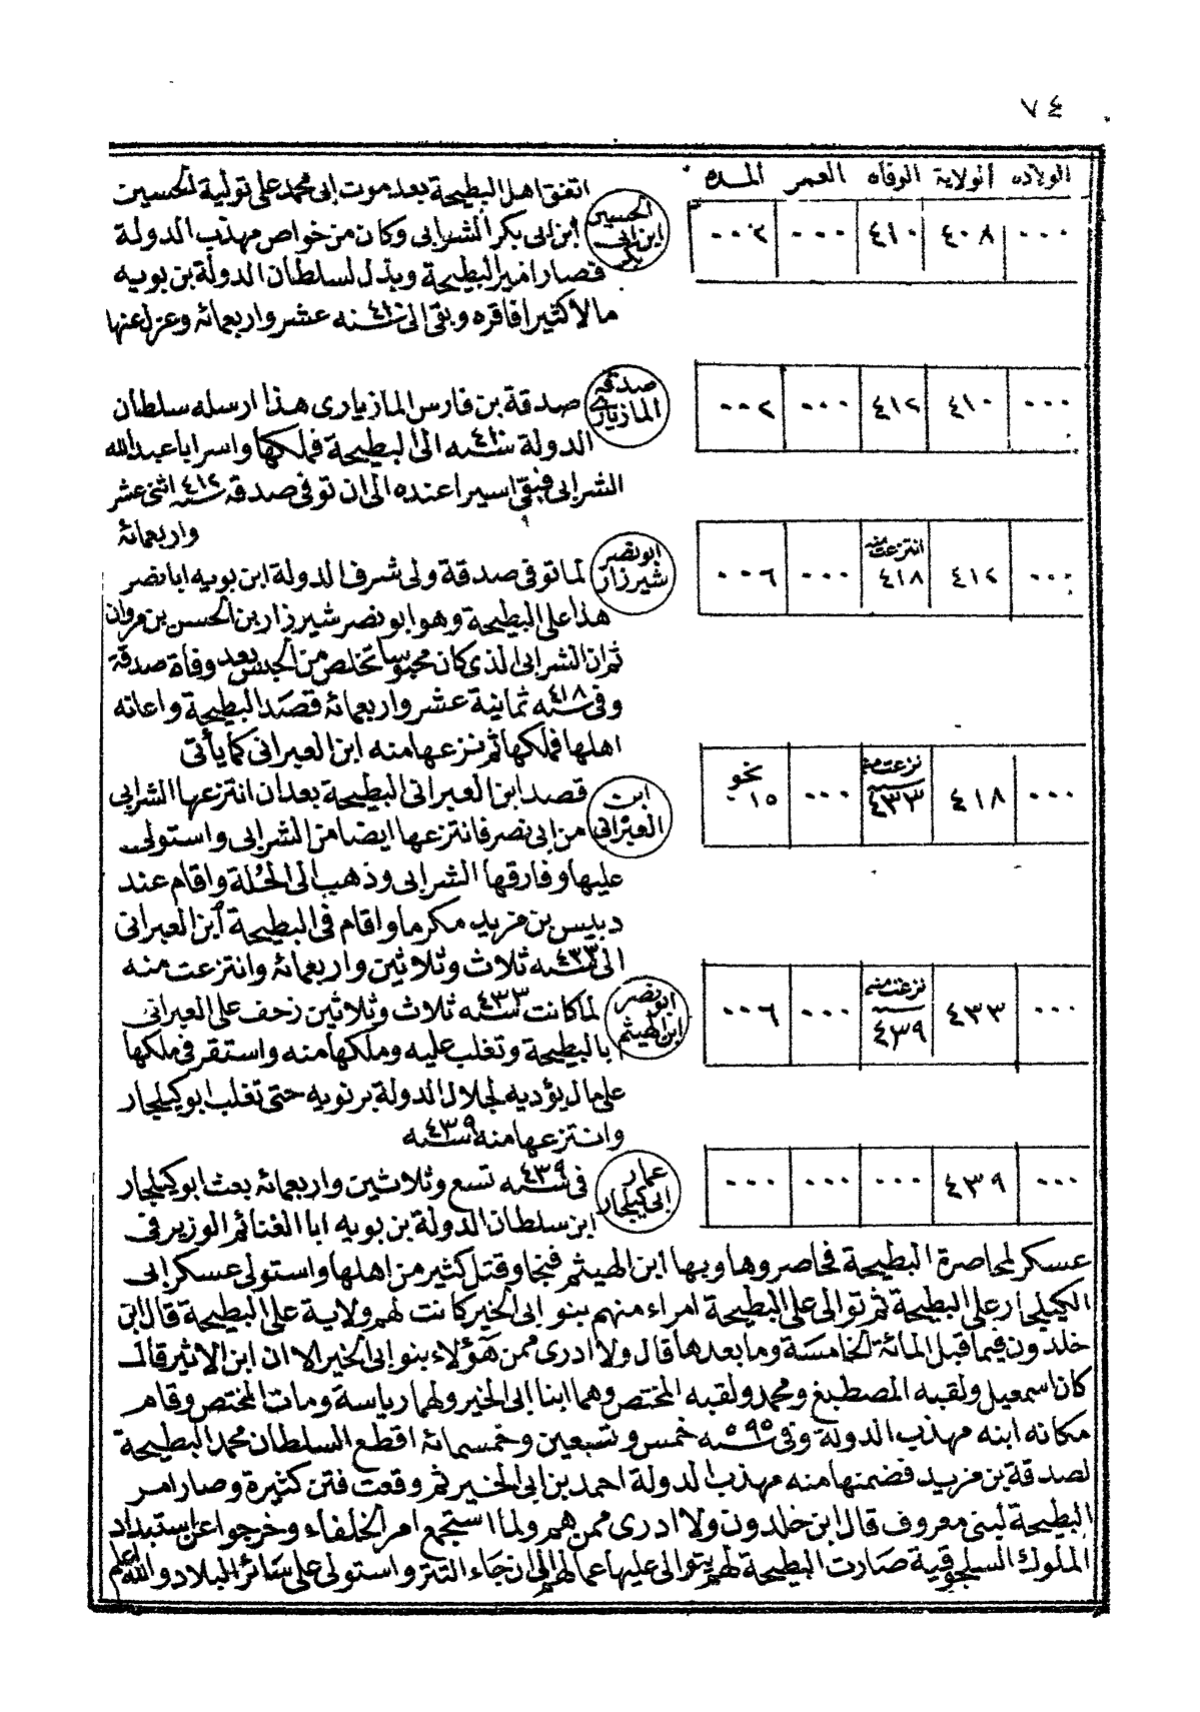 ٧٤
الولاده الولاية الوفاه العمر المده
٠٠٠ ٤٠٨ ٤١٠ ٠٠٠ ٠٠٢
الحسين
ابن ابى
بكر
اتفق اهل البطيحة بعد موت ابى محمد على تولية الحسين
ابن ابى بكر الشرابى وكان من خواص مهذب الدولة
فصار امير البطيحة وبذل لسلطان الدولة بن بويه
مالا كثيرا فاقره وبقى الى سنه ٤١٠ عشر واربعمائة وعزل عنها
٠٠٠ ٤١٠ ٤١٢ ٠٠٠ ٠٠٢
صدقة
المازيارى
صدقة بن فارس المازيارى هذا ارسله سلطان
الدولة سنه ٤١٠ الى البطيحة فملكها واسر ابا عبد الله
الشرابى فبقى اسيرا عنده الى ان توفى صدقة سنه ٤١٢ اثنى عشر
واربعمائة
٠٠٠ ٤١٢ انتزعت منه ٤١٨ ٠٠٠ ٠٠٦
ابو نصر
شيرزار
لما توفى صدقة ولى شرف الدولة ابن بويه ابا نصر
هذا على البطيحة وهو ابو نصر شيرزار بن الحسن بن مروان
ثم ان الشرابى الذى كان محبوسا تخلص من الحبس بعد وفاة صدقة
وفى سنه ٤١٨ ثمانية عشر واربعمائة قصد البطيحة واعانه
اهلها فملكها ثم نزعها منه ابن العبرانى كما يأتى
٠٠٠ ٤١٨ نزعت منه ٤٣٣ ٠٠٠ نحو ١٥
ابن
العبرانى
قصد ابن العبرانى البطيحة بعد ان انتزعها الشرابى
من ابى نصر فانتزعها ايضا من الشرابى واستولى
عليها وفارقها الشرابى وذهب الى الحلة واقام عند
دبيس بن مزيد مكرما واقام فى البطيحة ابن العبرانى
الى سنه ٤٣٣ ثلاث وثلاثين واربعمائة وانتزعت منه
٠٠٠ ٤٣٣ نزعت منه ٤٣٩ ٠٠٠ ٠٠٦
ابو نصر
ابن الهيثم
لما كانت سنه ٤٣٣ ثلاث وثلاثين زحف على العبرانى
بالبطيحة وتغلب عليه وملكها منه واستقر فى ملكها
على مال يؤديه لجلال الدولة بن بويه حتى تغلب ابو كيلجار
وانتزعها منه سنه ٤٣٩
٠٠٠ ٤٣٩ ٠٠٠ ٠٠٠ ٠٠٠
عمار
ابى كيلجار
فى سنه ٤٣٩ تسع وثلاثين واربعمائة بعث ابو كيلجار
ابن سلطان الدولة بن بويه ابا الغنائم الوزير فى
عسكر لمحاصرة البطيحة فحاصروها وبها ابن الهيثم فنجا وقتل كثير من اهلها واستولى عسكر ابى
الكيلجار على البطيحة ثم توالى على البطيحة امراء منهم بنو ابى الخير كانت لهم ولاية على البطيحة قال ابن
خلدون فيما قبل المائة الخامسة وما بعدها قال ولا ادرى ممن هؤلاء بنو ابى الخير الا ان ابن الاثير قال
كان اسمعيل ولقبه المصطبغ ومحمد ولقبه المختص وهما ابنا ابى الخير ولهما رياسة ومات المختص وقام
مكانه ابنه مهذب الدولة وفى سنه ٥٩٥ خمس وتسعين وخمسمائة اقطع السلطان محمد البطيحة
لصدقة بن مزيد فضمنها منه مهذب الدولة احمد بن ابى الخير ثم وقعت فتن كثيرة وصار امر
البطيحة لبنى معروف قال ابن خلدون ولا ادرى ممن هم ولما استجمع امر الخلفاء وخرجوا عن استبداد
الملوك السلجوقية صارت البطيحة لهم يتوالى عليها عمالهم الى ان جاء التتر واستولى على سائر البلاد والله اعلم